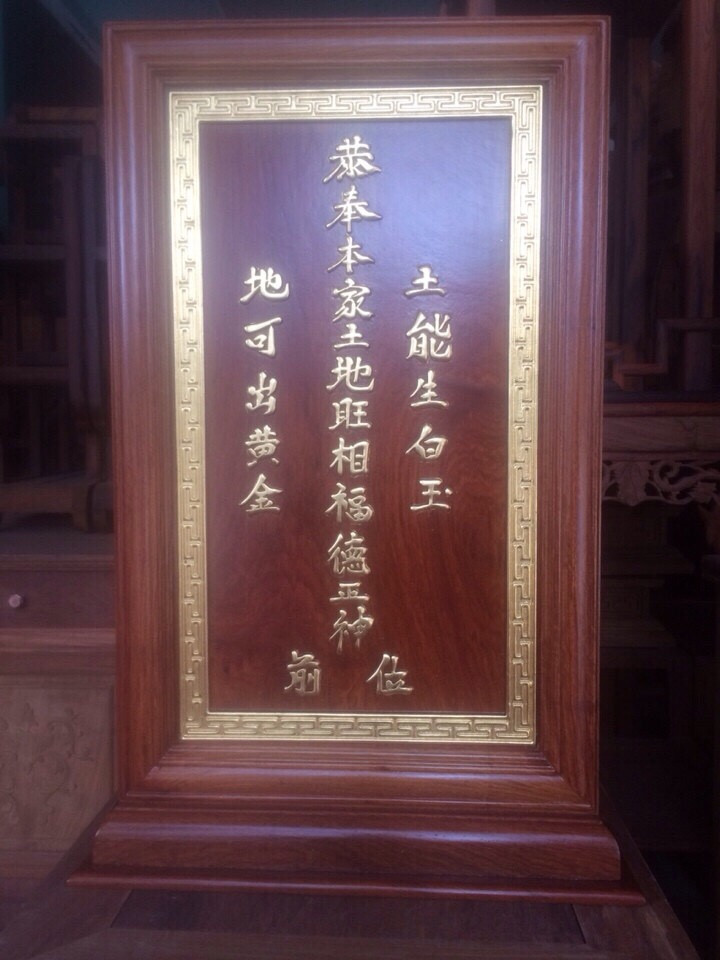 土能生白玉
恭奉本家土地旺相福德正神
地可出黄金
位前